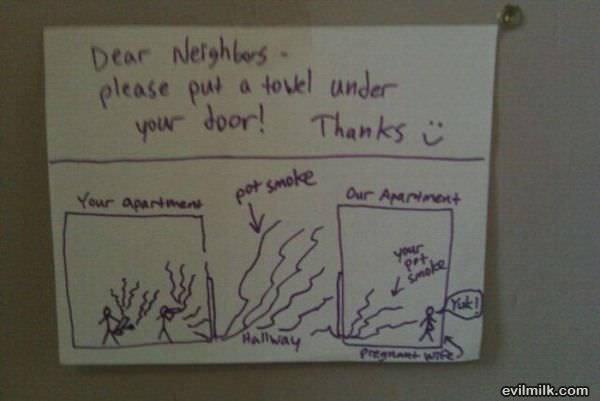 Dear Neighbors -
please put a towel under
your door! Thanks :)
Your apartment
pot smoke
Our Apartment
your
pot
smoke
Yuk!
Hallway
pregnant wife
evilmilk.com